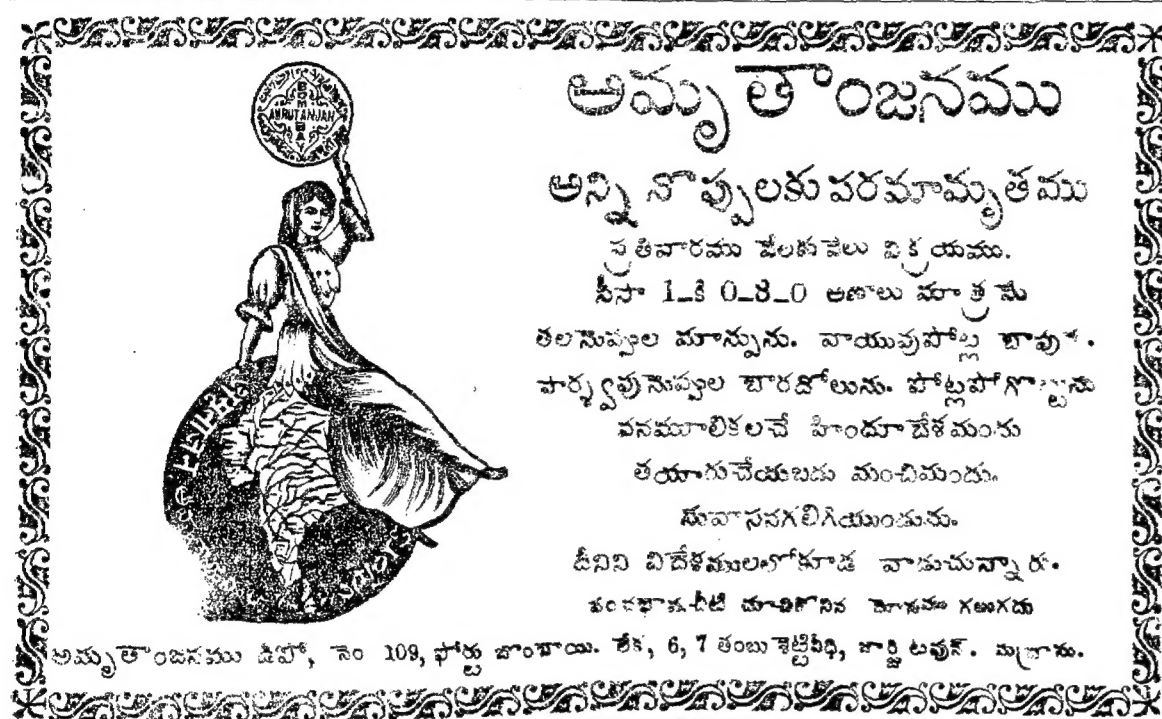 BOMBAY
AMRUTANJAN
అమృతాంజనము
అన్ని నొప్పులకు పరమామృతము
ప్రతివారము వేలకువేలు విక్రయము.
సీసా 1_కి 0_8_0 అణాలు మాత్రమే
తలనొప్పుల మాన్పును. వాయువుపోట్ల బాపు
పార్శ్వపునొప్పుల బారదోలును. పోట్లపోగొట్టును
వనమూలికలచే హిందూదేశమందు
తయారుచేయబడు మంచిమందు.
సువాసనగలిగియుండును.
దీనిని విదేశములలోకూడ వాడుచున్నారు.
చీటి చూచికొనిన మోసము గలుగదు
అమృతాంజనము డిపో, నెం 109, ఫోర్టు బొంబాయి. లేక, 6, 7 తంబుశెట్టివీధి, జార్జి టవున్. మద్రాసు.